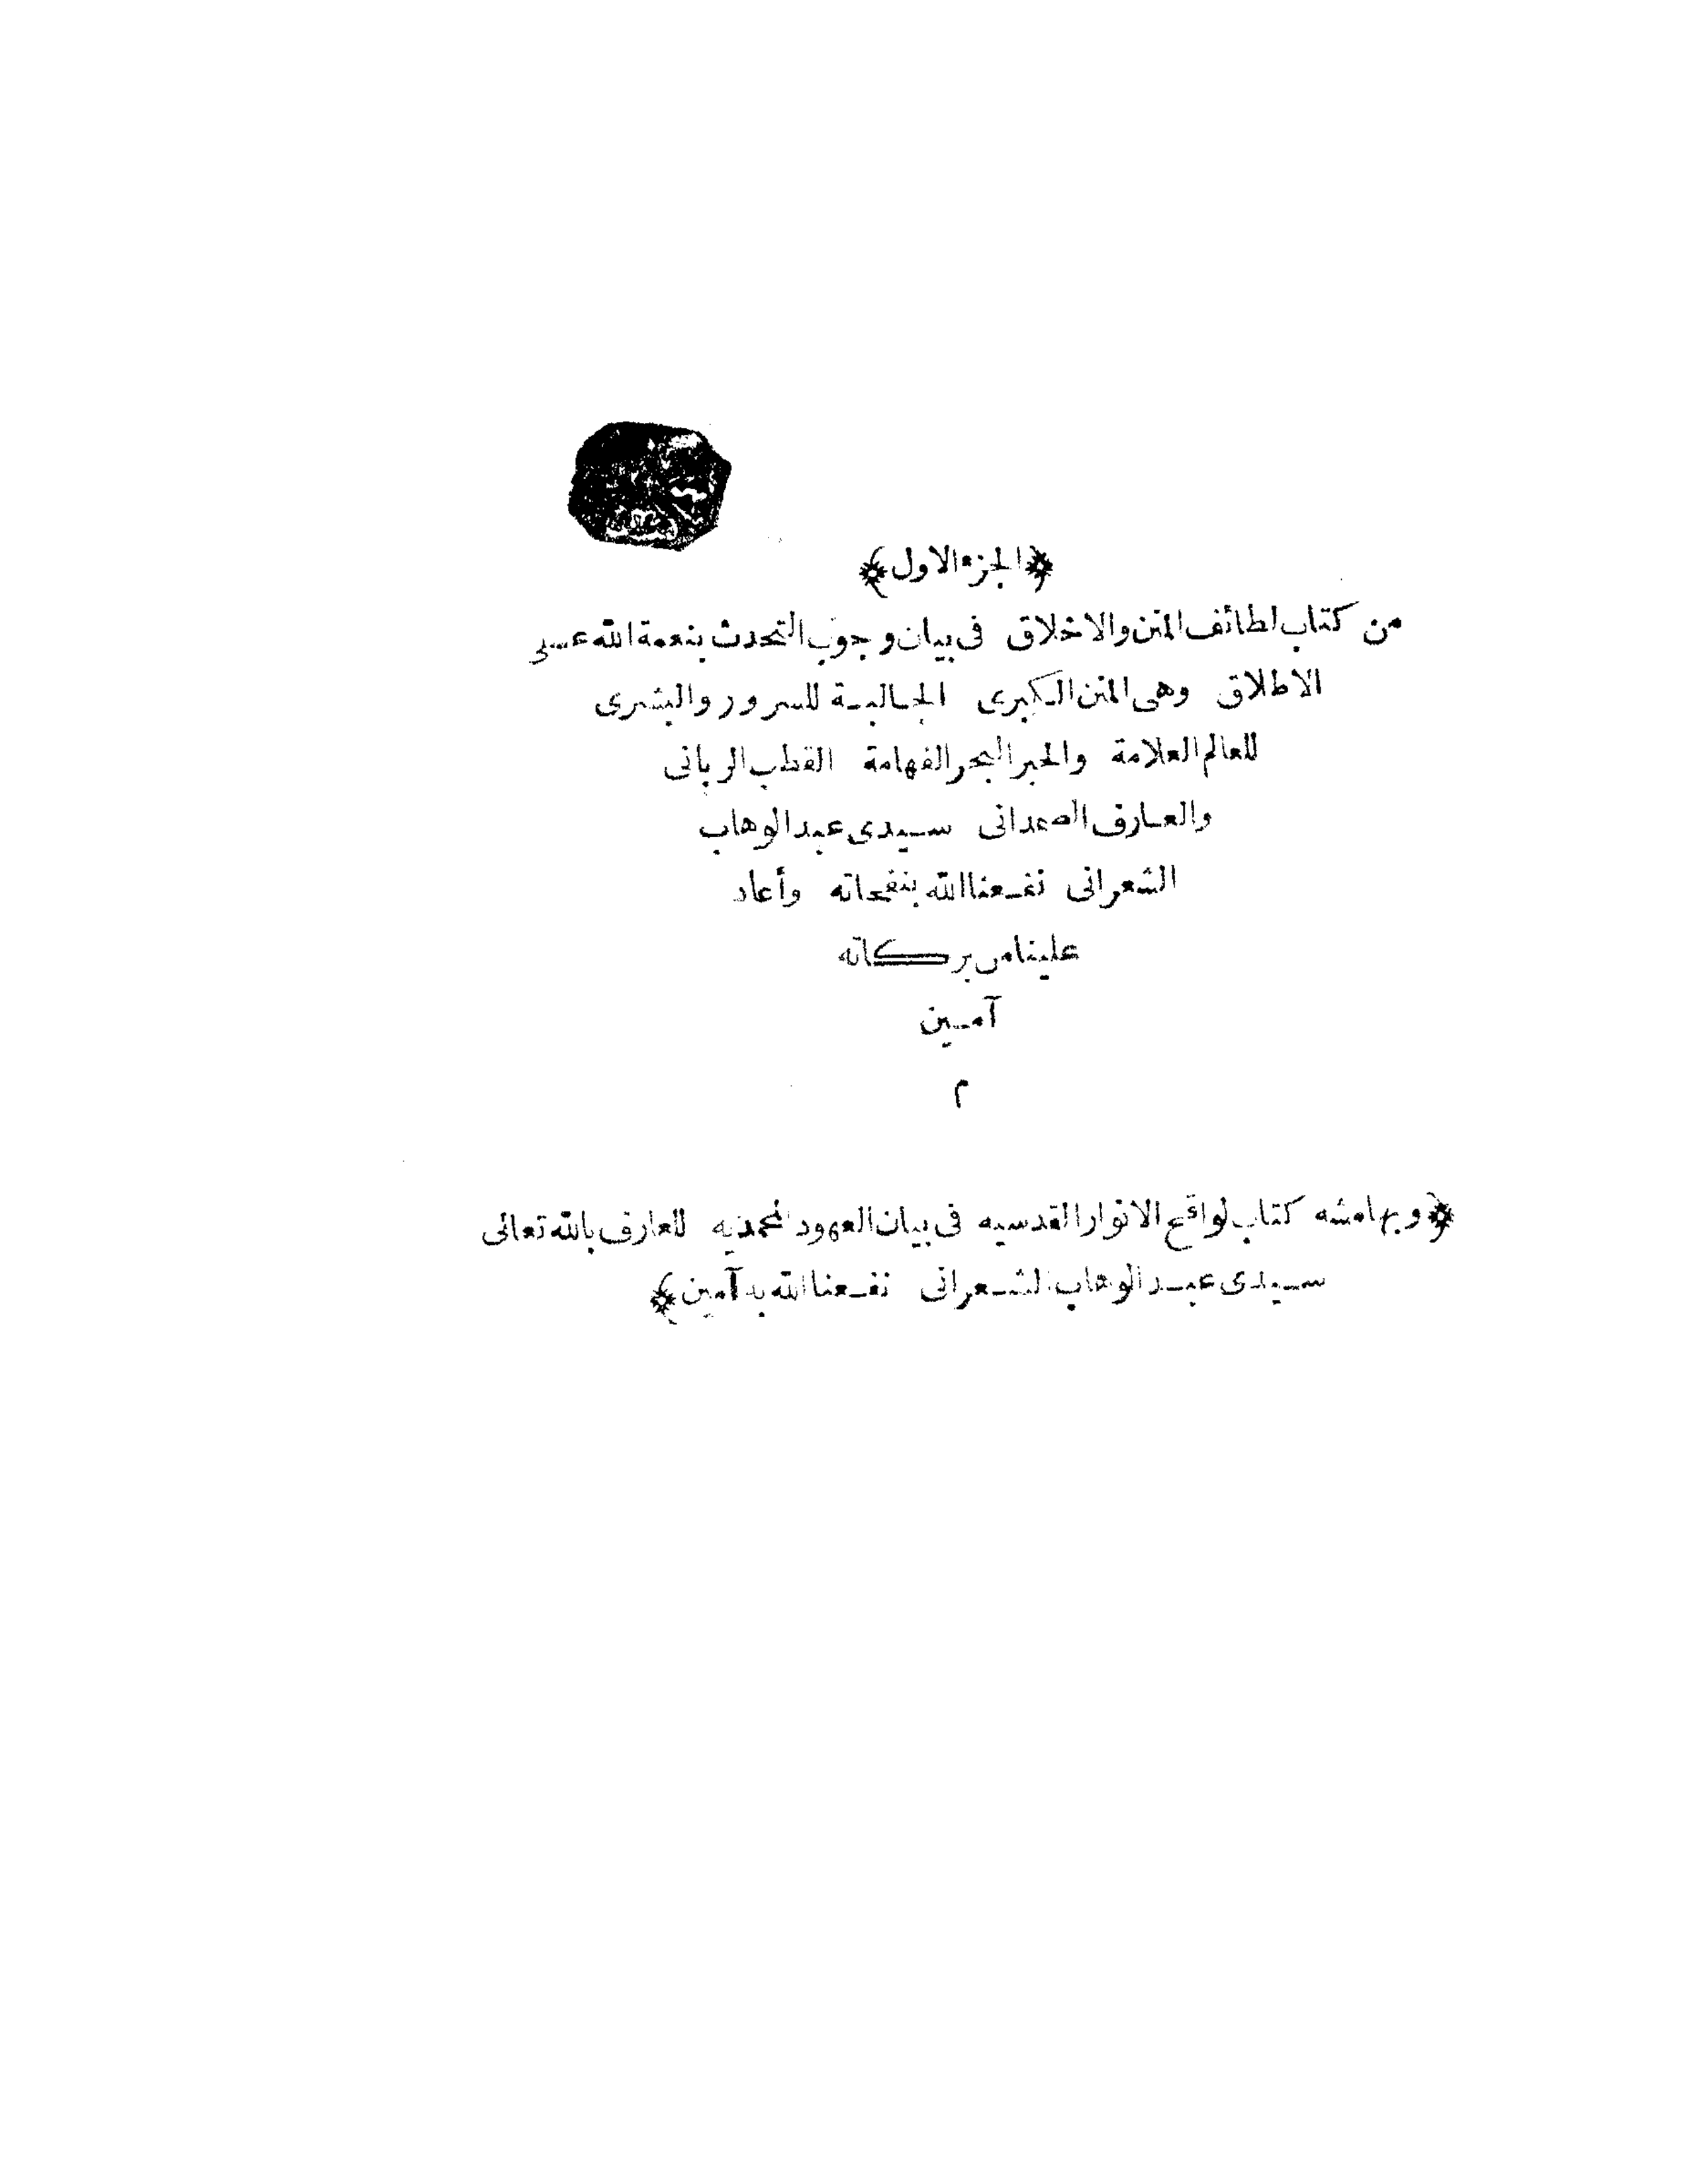 ﴿الجزء الاول﴾
من كتاب لطائف المنن والاخلاق فى بيان وجوب التحدث بنعمة الله على
الاطلاق وهى المنن الكبرى الجالبة للسرور والبشرى
للعالم العلامة والحبر البحر الفهامة القطب الربانى
والعارف الصمدانى سيدى عبد الوهاب
الشعرانى نفعنا الله بنفحاته وأعاد
علينا من بركاته
آمين
م
﴿وبهامشه كتاب لواقح الانوار القدسيه فى بيان العهود المحمديه للعارف بالله تعالى
سيدى عبد الوهاب الشعرانى نفعنا الله به آمين﴾